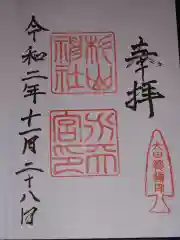 奉拝
杉山
神社
水天
宮印
令和二年十一月二十八日